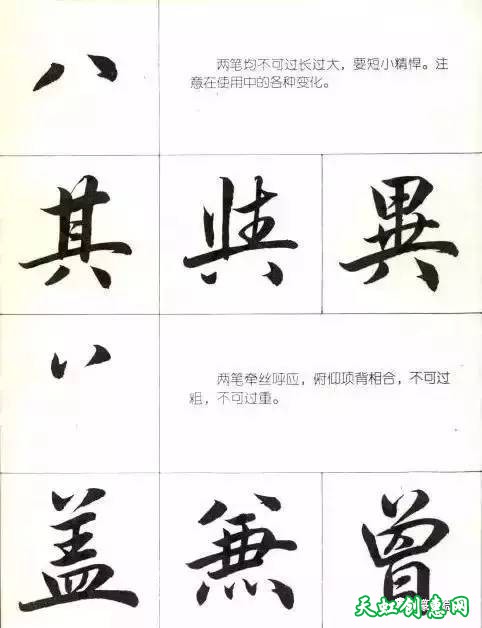 八
两笔均不可过长过大，要短小精悍。注
意在使用中的各种变化。
其 異
丷
两笔牵丝呼应，俯仰项背相合，不可过
粗，不可过重。
盖 兼 曾
天虹创意网